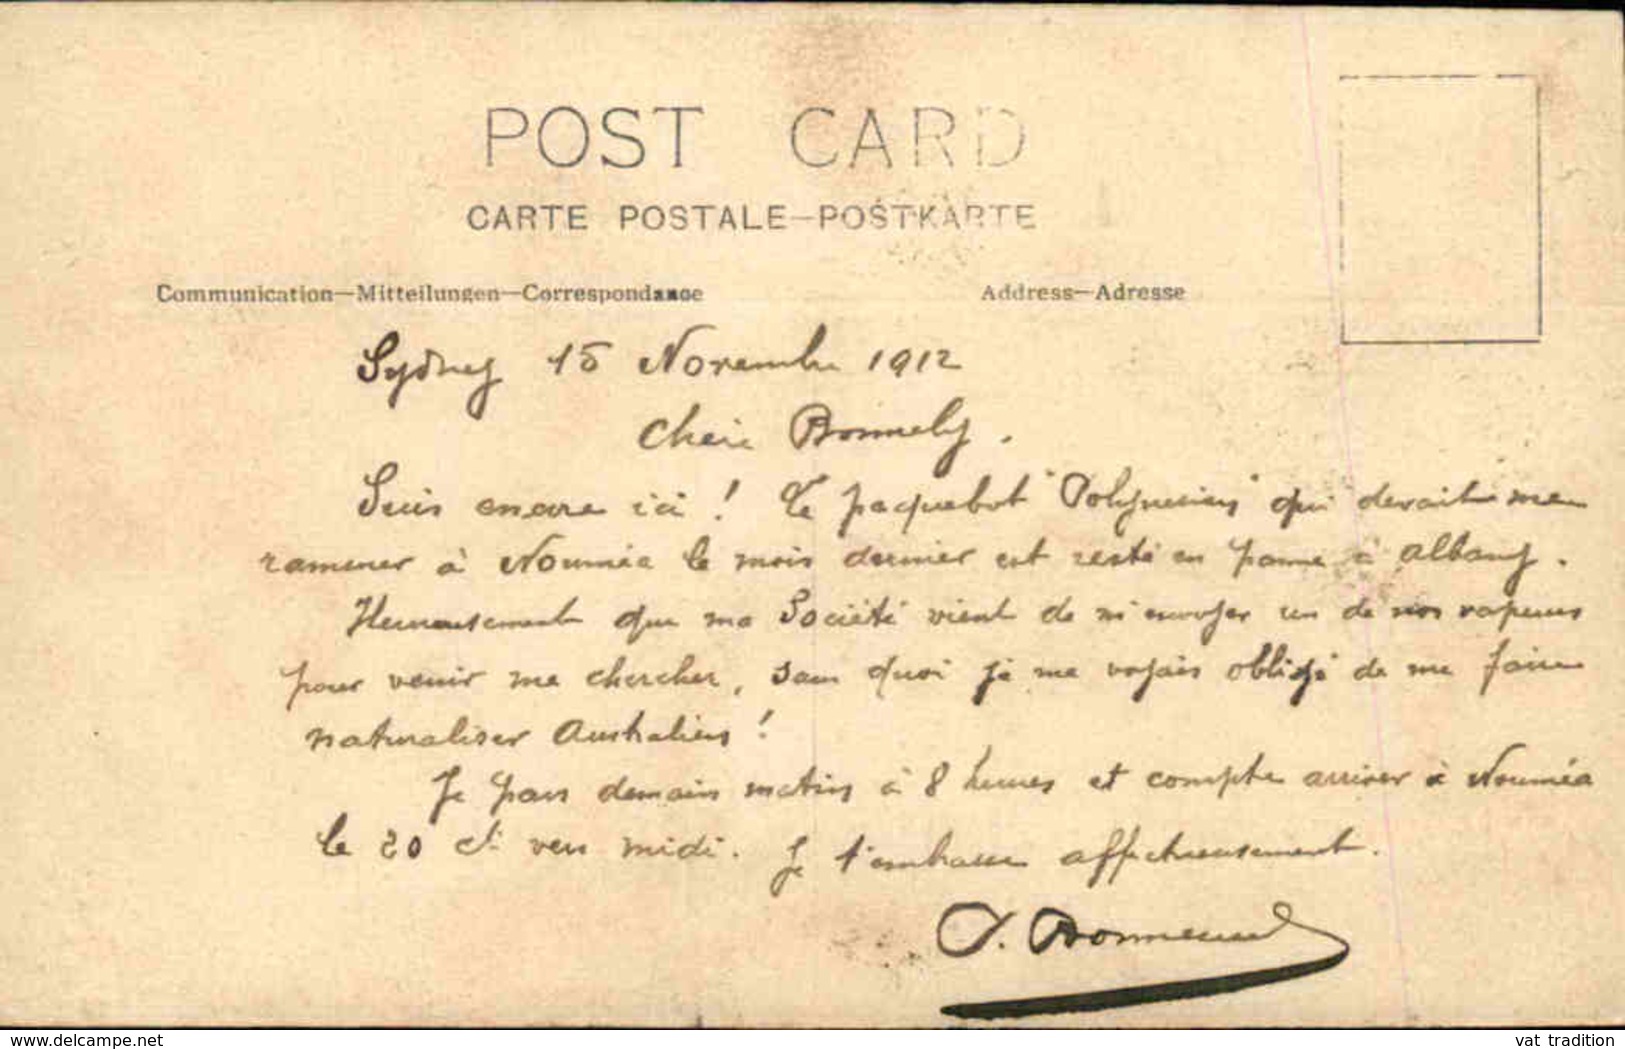 POST CARD
CARTE POSTALE—POSTKARTE
Communication—Mitteilungen—Correspondance
Address—Adresse
Sydney 15 Novembre 1912
Suis encore ici ! Le paquebot "Polynesien" qui devait me
ramener à Nouméa le mois dernier est resté en panne à Albany.
Heureusement que ma Société vient de m'envoyer un de nos vapeurs
pour venir me chercher, sans quoi je me voyais obligé de me faire
naturaliser Australien !
Je pars demain matin à 8 heures et compte arriver à Nouméa
le 20 ct vers midi. Je t'embrasse affectueusement.
vat tradition
delcampe.net